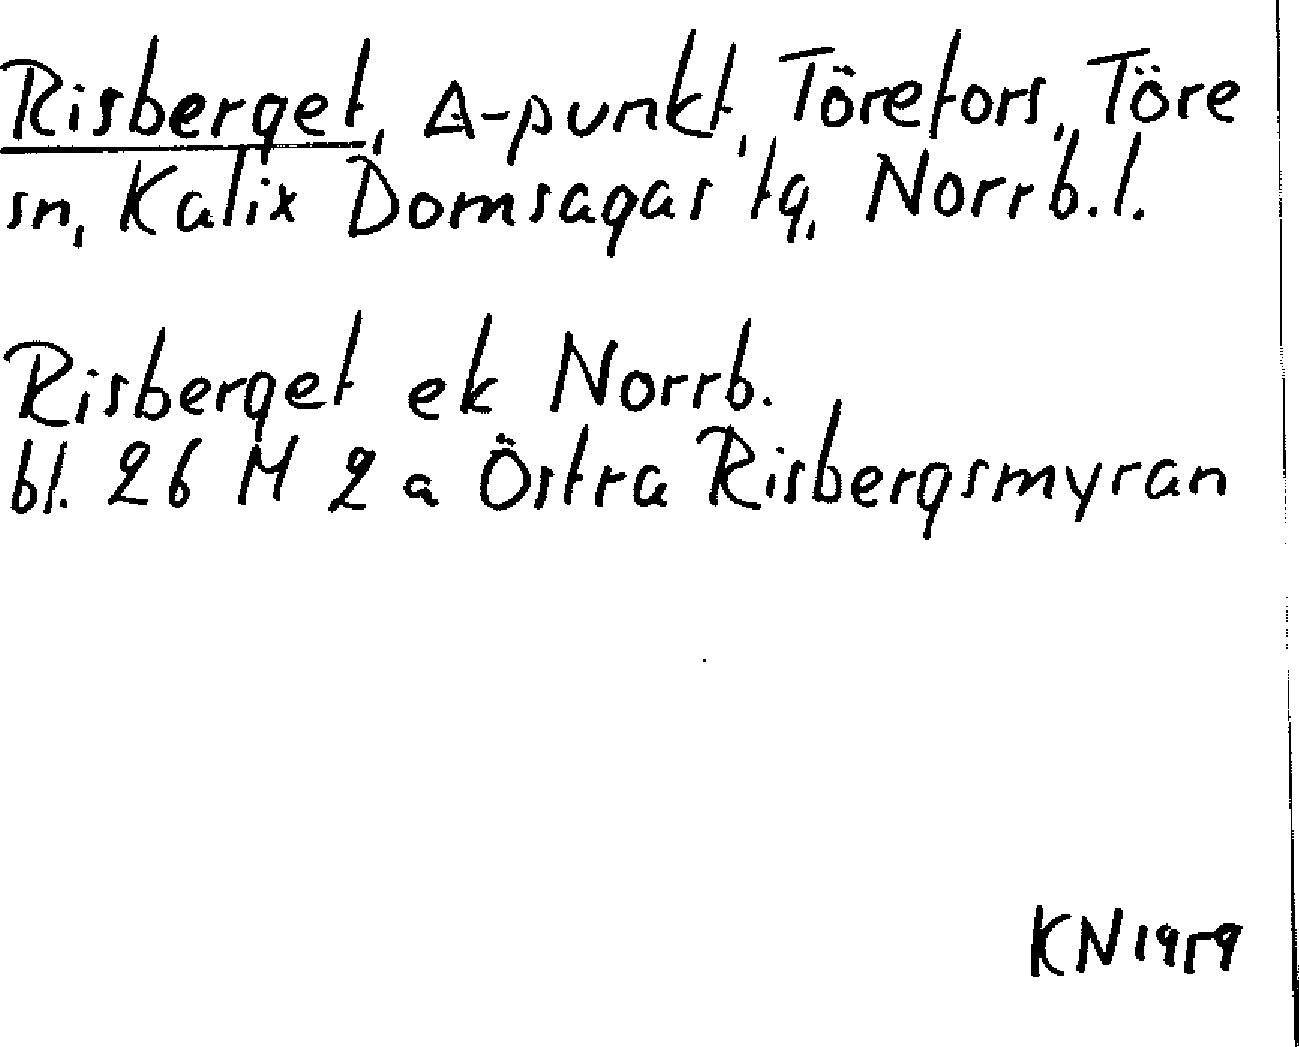 Risberget, Δ-punkt, Törefors, Töre
sn, Kalix Domsagas tg, Norrb.l.
Risberget ek Norrb.
bl. 26 M 2 a Östra Risbergsmyran
KN 1959